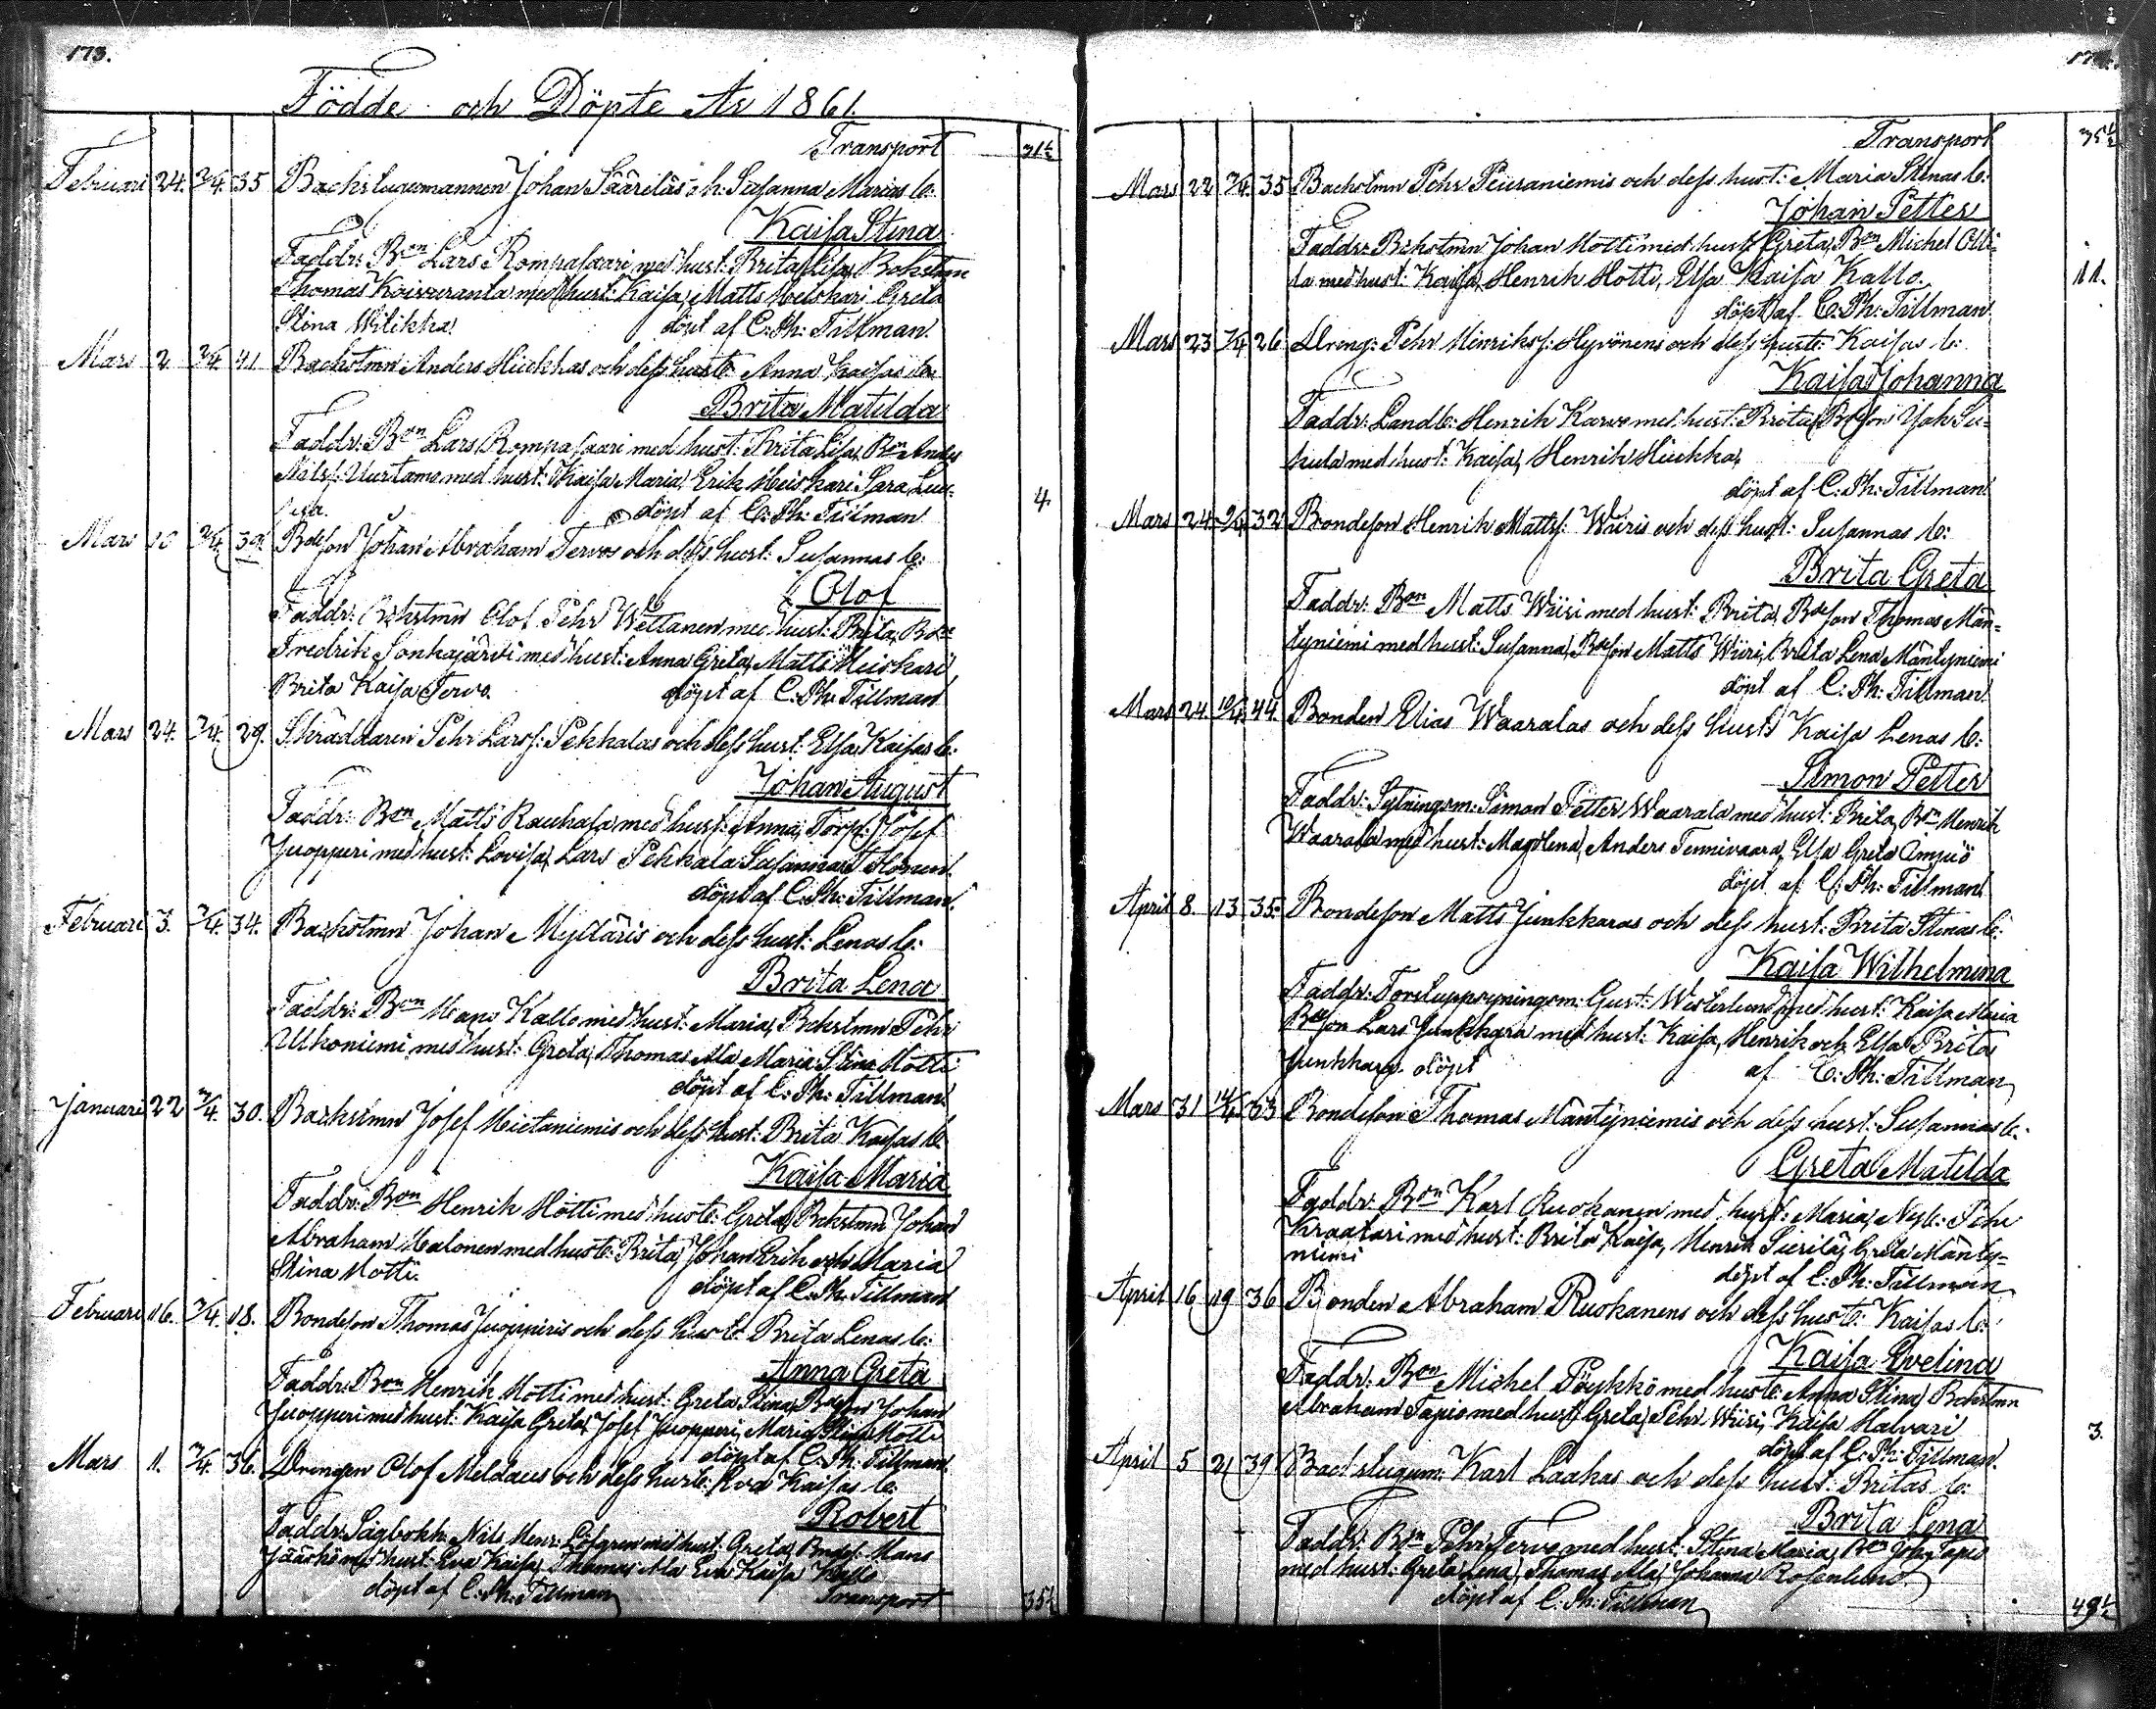 173.
Födde och Döpte År 1861.
Transport 31½
Februari 24. 2/4. 35 Backstugumannen Johan Sääreläs o h: Susanna Marias b:
Kaisa Stina
Faddr: Bon Lars Rompasaari med hust: Brita Lisa, Bakstmn
Thomas Koivuranta med hust: Kaisa, Matts Meiskari Greta
Stina döpt af C. Ph: Tillman.
Mars 2 2/4. 41 Backstmn Anders Hiukkas och dess hust: Anna Kaisas
Brita Matilda
Faddr: Bon Lars Rompasaari med hust: Brita Lisa, Bon Anders
Nilss: Uurtamo med hust: Kaisa Maria, Erik Meiskari Sara
döpt af C. Ph: Tillman 4.
Mars 10 2/4. 39. Bdeson Johan Abraham Tervos och dess hust: Susannas b:
Olof
Faddr: Bckstmn Olof Pehr Wettanen med hust: Brita, Bon
Fredrik Sonkajärvi med hust: Anna Greta, Matts Meiskari
Brita Kaisa Tervo. döpt af C. Ph: Tillman
Mars 24. 2/4. 29. Skräddaren Pehr Larss: Pekkalas och dess hust: Elsa Kaisas b:
Johan August
Faddr: Bon Matts Rauhala med hust: Anna, Torp: Josef
Juopperi med hust: Lovisa, Lars Pekkala Susanna
döpt af C. Ph: Tillman.
Februari 3. 2/4. 34. Backstmn Johan Mylläris och dess hust: Lenas b:
Brita Lena
Faddr: Bon Mans Kallo med hust: Maria, Bckstmn Pehr
Ulkoniemi med hust: Greta, Thomas Ala Maria Stina Motti
döpt af C. Ph: Tillman.
Januari 22 3/4. 30. Backstmn Josef Hietaniemis och dess hust: Brita Kaisas b:
Kaisa Maria
Faddr: Bon Henrik Hotti med hust: Greta, Bckstmn Johan
Abraham Halonen med hust: Brita, Johan Erik och Maria
Stina Motti. döpt af C. Ph: Tillman
Februari 16. 3/4. 18. Bondeson Thomas Juopperis och dess hust: Brita Lenas b:
Anna Greta
Faddr: Bon Henrik Motti med hust: Greta Stina, Bdeson Johan
Juopperi med hust: Kaisa Greta, Josef Juopperi, Maria Stina Motti
döpt af C. Ph: Tillman.
Mars 11. 3/4. 36. Drengen Olof Meldaus och dess hust: Eva Kaisas b:
Robert
Faddr: Sågbokh: Nils Henr: Löfgren med hust: Greta, Bndes: Mans
Jääskö med hust: Eva Kaisa, Thomas Ala Eva Kaisa Kallo
döpt af C. Ph: Tillman Transport 35½
Transport 35½
Mars 22 7/4. 35 Backstmn Pehr Peuraniemis och dess hust: Maria Stinas b:
Johan Petter
Faddr: Bckstmn Johan Motti med hust: Greta, Bon Michel Olli
la med hust: Kaisa, Henrik Hotti, Elsa Kaisa Kallo. 11.
döpt af C. Ph: Tillman
Mars 23 7/4 26 Dreng: Pehr Henrikss: Hyvönens och dess hust: Kaisas b:
Kaisa Johanna
Faddr: Landb: Henrik Karvo med hust: Brita, Bdeson Joh Sie-
kula med hust: Kaisa, Henrik Hiukka,
döpt af C. Ph: Tillman
Mars 24 9/4 32 Bondeson Henrik Mattss: Wiiris och dess hust: Susannas b:
Brita Greta
Faddr: Bon Matts Wiiri med hust: Brita, Bdeson Thomas Män-
tyniemi med hust: Susanna, Bdeson Matts Wiiri, Brita Lena Mäntyniemi
döpt af C. Ph: Tillman
Mars 24 10/4 44 Bonden Elias Waaralas och dess hust: Kaisa Lenas b:
Simon Petter
Faddr: Sytningsm: Simon Petter Waarala med hust: Brita, Bon Henrik
Waarala med hust: Magdlena, Anders Tennivaara, Elsa Greta
döpt af C. Ph: Tillman
April 8. 13 35. Bondeson Matts Junkkaras och dess hust: Brita Stinas b:
Kaisa Wilhelmina
Faddr: Forstuppsyningsm: Gust: Westerlund med hust: Kaisa Maria
Bdeson Lars Junkkara med hust: Kaisa, Henrik och Elsa Brita
Junkkara. döpt af C. Ph: Tillman
Mars 31 14/4 33 Bondeson Thomas Mäntyniemis och dess hust: Susannas b:
Greta Matilda
Faddr: Bon Karl Ruokanen med hust: Maria, Nyb: Pehr
Kraatari med hust: Brita Kaisa, Henrik Sierilä, Greta Mänty-
niemi döpt af C. Ph: Tillman
April 16 19 36 Bonden Abraham Ruokanens och dess hust: Kaisas b:
Kaisa Evelina
Faddr: Bon Michel Pöykkö med hust: Anna Stina, Bckstmn
Abraham Tapio med hust: Greta, Pehr Wiiri, Kaisa Halvari
döpt af C. Ph: Tillman. 3.
April 5 21 39 Backstugum: Karl Laakas och dess hust: Britas b:
Brita Lena
Faddr: Bon Pehr Tervo med hust: Stina Maria, Bon Tapio
med hust: Greta Lena, Thomas Ala, Johanna Rosenlund.
döpt af C. Ph: Tillman 49½